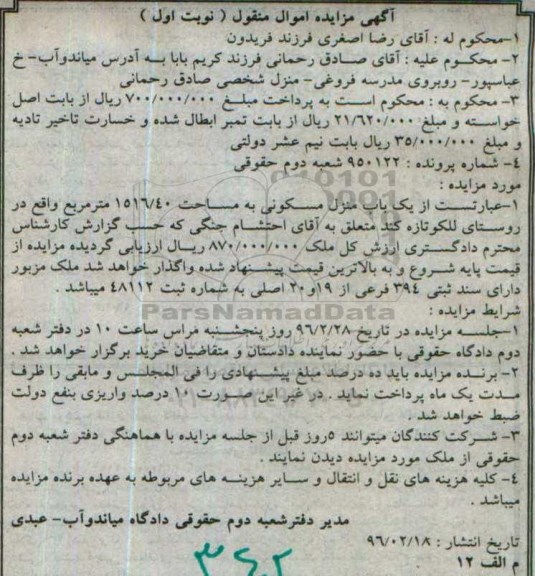 آگهی مزایده اموال منقول ( نوبت اول )
۱-محکوم له : آقای رضا اصغری فرزند فریدون
۲- محکوم علیه : آقای صادق رحمانی فرزند کریم بابا به آدرس میاندوآب- خ
عباسپور- روبروی مدرسه فروغی- منزل شخصی صادق رحمانی
۳- محکوم به : محکوم است به پرداخت مبلغ ۷۰۰/۰۰۰/۰۰۰ ریال از بابت اصل
خواسته و مبلغ ۲۱/۶۲۰/۰۰۰ ریال از بابت تمبر ابطال شده و خسارت تاخیر تادیه
و مبلغ ۳۵/۰۰۰/۰۰۰ ریال بابت نیم عشر دولتی
۴- شماره پرونده : ۹۵۰۱۲۲ شعبه دوم حقوقی
مورد مزایده :
۱-عبارتست از یک باب منزل مسکونی به مساحت ۱۵۱۶/۴۰ مترمربع واقع در
روستای للکوتازه کند متعلق به آقای احتشام جنگی که حسب گزارش کارشناس
محترم دادگستری ارزش کل ملک ۸۷۰/۰۰۰/۰۰۰ ریال ارزیابی گردیده مزایده از
قیمت پایه شروع و به بالاترین قیمت پیشنهاد شده واگذار خواهد شد ملک مزبور
دارای سند ثبتی ۳۹۴ فرعی از ۱۹و۲۰ اصلی به شماره ثبت ۴۸۱۱۲ میباشد .
ParsNamadData
شرایط مزایده :
۱-جلسه مزایده در تاریخ ۹۶/۲/۲۸ روز پنجشنبه مراس ساعت ۱۰ در دفتر شعبه
دوم دادگاه حقوقی با حضور نماینده دادستان و متقاضیان خرید برگزار خواهد شد .
۲- برنده مزایده باید ده درصد مبلغ پیشنهادی را فی المجلس و مابقی را ظرف
مدت یک ماه پرداخت نماید . در غیر این صورت ۱۰ درصد واریزی بنفع دولت
ضبط خواهد شد .
۳- شرکت کنندگان میتوانند ۵روز قبل از جلسه مزایده با هماهنگی دفتر شعبه دوم
حقوقی از ملک مورد مزایده دیدن نمایند .
۴- کلیه هزینه های نقل و انتقال و سایر هزینه های مربوطه به عهده برنده مزایده
میباشد .
مدیر دفترشعبه دوم حقوقی دادگاه میاندوآب- عبدی
تاریخ انتشار : ۹۶/۰۲/۱۸
م الف ۱۲